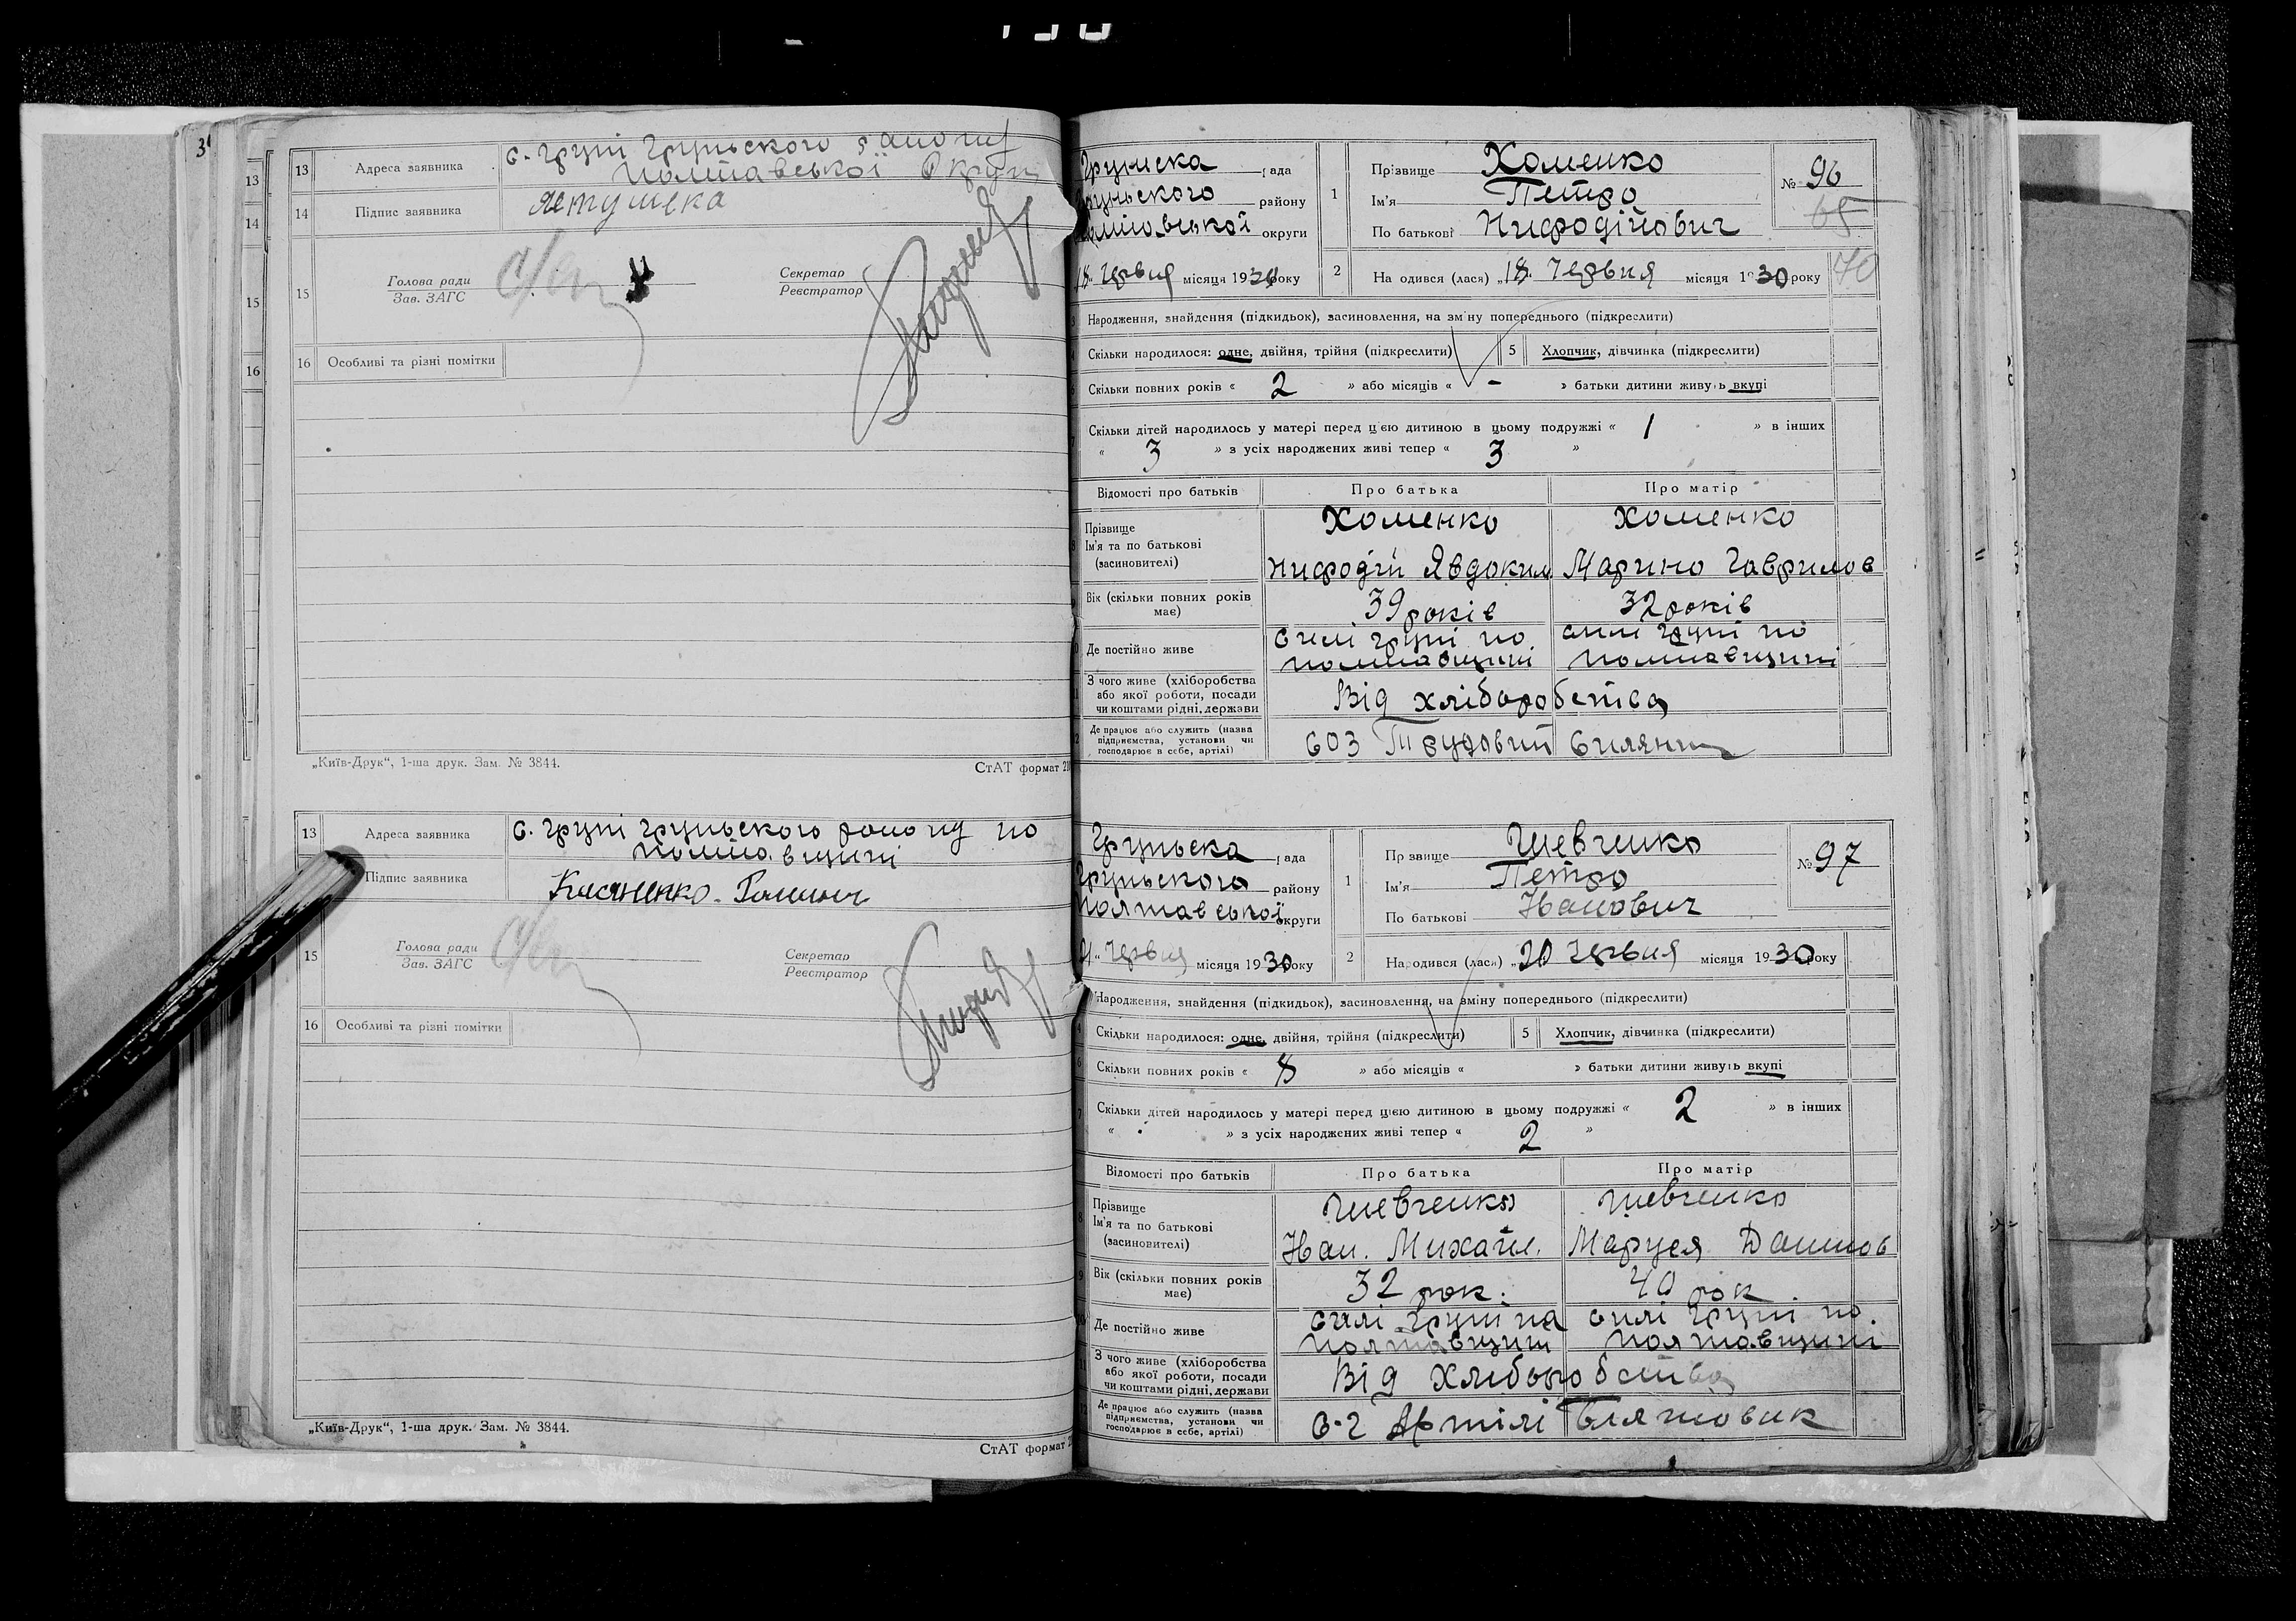 3
13
14
15
16
13 Адреса заявника с. Груні Грунського району
Полтавської Округи
14 Підпис заявника
15 Голова ради
Зав. ЗАГС
Секретар
Реєстратор
16 Особливі та різні помітки
„Київ-Друк“, 1-ша друк. Зам. № 3844.
СтАТ формат
13 Адреса заявника с. Груні Грунського району по
Полтавщині
Підпис заявника
15 Голова ради
Зав. ЗАГС
Секретар
Реєстратор
16 Особливі та різні помітки
„Київ-Друк“, 1-ша друк. Зам. № 3844.
СтАТ формат
Грунська рада
Грунського району
Полтавської округи
18 Червня місяця 1930 року
1 Прізвище Хоменко
Ім'я Петро
По батькові Нифодійович
№ 96
65
70
2 На одився (лася) „18 Червня місяця 1930 року
Народження, знайдення (підкидьок), засиновлення, на зміну попереднього (підкреслити)
Скільки народилося: одне, двійня, трійня (підкреслити) 5 Хлопчик, дівчинка (підкреслити)
Скільки повних років « 2 » або місяців « - » батьки дитини живуть вкупі
Скільки дітей народилось у матері перед цією дитиною в цьому подружжі « 1 » в інших
« 3 » з усіх народжених живі тепер « 3 »
Відомості про батьків Про батька Про матір
Прізвище Хоменко Хоменко
Ім'я та по батькові
(засиновителі) Нифодій Явдоким Марино Гаврилов
Вік (скільки повних років
має) 39 років 32 років
Де постійно живе силі Груні по силі Груні по
Полтавщині Полтавщині
З чого живе (хліборобства
або якої роботи, посади
чи коштами рідні, держави Від хліборобства
Де працює або служить (назва
підприємства, установи чи
господарює в себе, артілі) СОЗ Трудовий Силянин
Грунська рада
Грунського району
Полтавської округи
Червня місяця 1930 року
1 Прізвище Шевченко
Ім'я Петро
По батькові Іванович
№ 97
2 Народився (лася) „20 Червня місяця 1930 року
Народження, знайдення (підкидьок), засиновлення, на зміну попереднього (підкреслити)
Скільки народилося: одне, двійня, трійня (підкреслити) 5 Хлопчик, дівчинка (підкреслити)
6 Скільки повних років « 8 » або місяців « » батьки дитини живуть вкупі
7 Скільки дітей народилось у матері перед цією дитиною в цьому подружжі « 2 » в інших
« » з усіх народжених живі тепер « 2 »
Відомості про батьків Про батька Про матір
8 Прізвище Шевченко Шевченко
Ім'я та по батькові
(засиновителі) Іван. Михайл. Маруся Данилов
9 Вік (скільки повних років
має) 32 рок. 40 рок
Де постійно живе силі Груні па силі Груні по
Полтавщині Полтавщині
11 З чого живе (хліборобства
або якої роботи, посади
чи коштами рідні, держави Від Хлиборобства
Де працює або служить (назва
підприємства, установи чи
господарює в себе, артілі) С-г Артілі